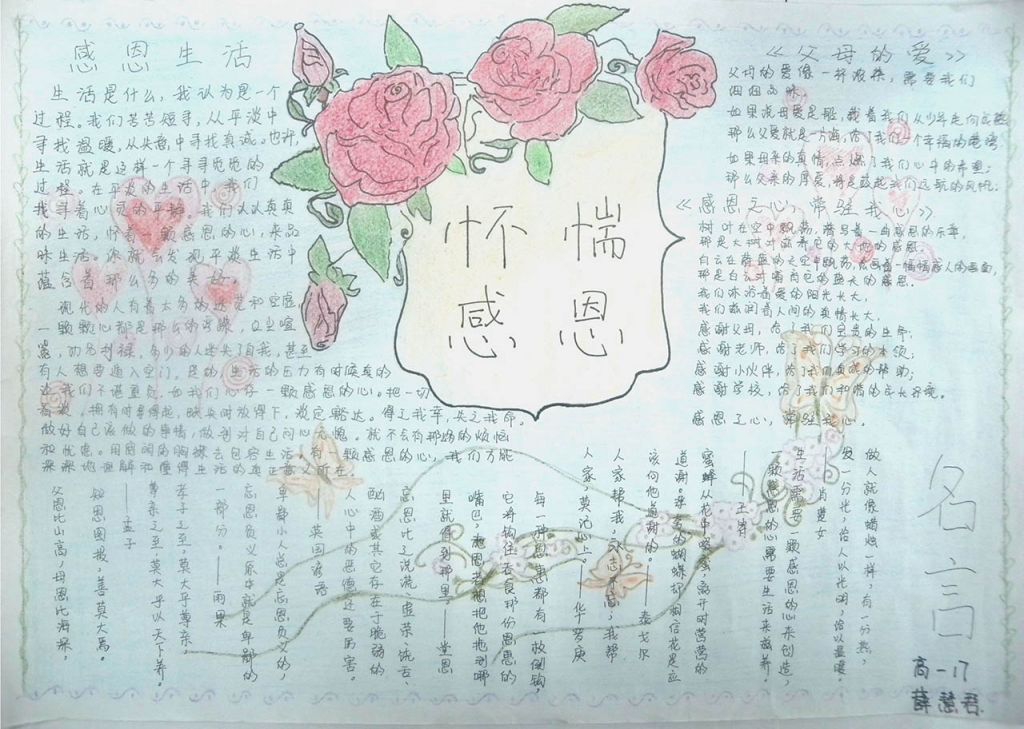 感恩生活
生活是什么，我认为是一个
过程。我们苦苦
寻找温暖，从失意中寻找真诚。也许，
生活就是这样一个寻寻觅觅的
过程。在平淡的生活中，我们
找寻着心灵的平静。我们认认真真
的生活，怀着一颗感恩的心，来品
味生活。你就会发现平淡生活中
蕴含着那么多的美好。
现代的人有着太多的迷茫和空虚
一颗颗心都是那么的
嚣，功名利禄，多少的人迷失了自我，甚至
有人想要遁入空门。是的，生活的压力有时候真的
让我们不堪重负。如我们心存一颗感恩的心，把一切
看淡，拥有时
做好自己该做的事情，做到对自己问心无愧。就不会有那么多的烦恼
和忧虑。用感恩的胸襟去包容生活，有一颗感恩的心，我们方能
深深地理解和懂得生活的真正意义所在。
怀揣
感恩
《父母的爱》
父母的爱像一杯浓茶，需要我们
细细品味。
如果说母爱是船，载着我们从少年走向成熟；
那么父爱就是一片海，给了我们一个幸福的港湾。
如果母亲的真情，点燃了我们心中的希望；
那么父亲的厚爱，将是鼓起我们远航的风帆。
《感恩之心，常驻我心》
树叶在空中飘荡，谱写着一曲感恩的乐章，
那是大树叶滋养它的大地的感恩。
白云在蔚蓝的天空中飘荡，绘画着一幅幅感人的画面，
那是白云对哺育它的蓝天的感恩。
我们沐浴着爱的阳光长大，
我们滋润着人间的真情长大，
感谢父母，给了我们宝贵的生命；
感谢老师，给了我们学习的本领；
感谢小伙伴，给了我们真诚的帮助；
感谢学校，给了我们和谐的成长环境。
感恩之心，常驻我心。
名言
做人就像蜡烛一样，有一分热，
发一分光，给人以光明，给以温暖。
——肖楚女
生活需要一颗感恩的心来创造，
一颗感恩的心需要生活来滋养。
——王符
蜜蜂从花中啜蜜，离开时营营的
道谢。浮夸的蝴蝶却相信花是应
该向他道谢的。——泰戈尔
人家帮我，永志不忘，我帮
人家，莫记心上。——华罗庚
每一种恩惠都有一枚倒钩，
它将钩住吞食那份恩惠的
嘴巴，施恩者想把他拖到哪
里就得到那里。——堂恩
忘恩比之说谎、虚荣、饶舌、
酗酒或其它存在于脆弱的
人心中的恶德还要厉害。
——英国谚语
卑鄙小人总是忘恩负义的，
忘恩负义原本就是卑鄙的
一部分。——雨果
孝子之至，莫大乎尊亲，
尊亲之至，莫大乎以天下养。
——孟子
知恩图报，善莫大焉。
父恩比山高，母恩比海深。
高一17
薛慧君